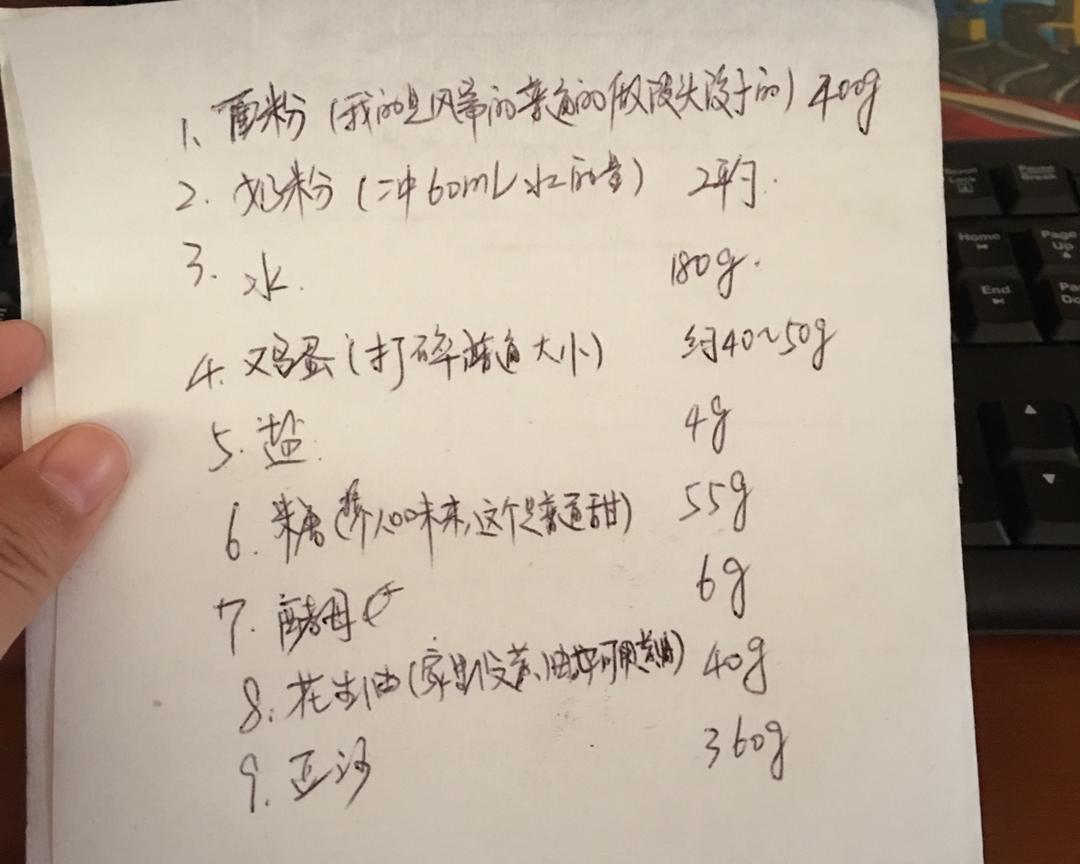 1、面粉（我的是风筝的普通的做馒头饺子的）400g
2. 奶粉（冲60mL水的量） 2平勺.
3. 水. 180g.
4. 鸡蛋（打碎普通大小） 约40~50g
5. 盐. 4g
6. 糖（按人口味来,这个是普通甜） 55g
7. 酵母 6g
8. 花生油（家里没黄油 可用黄油） 40g
9. 豆沙 360g
Scroll Lock
Pause Break
Home
Page Up
End